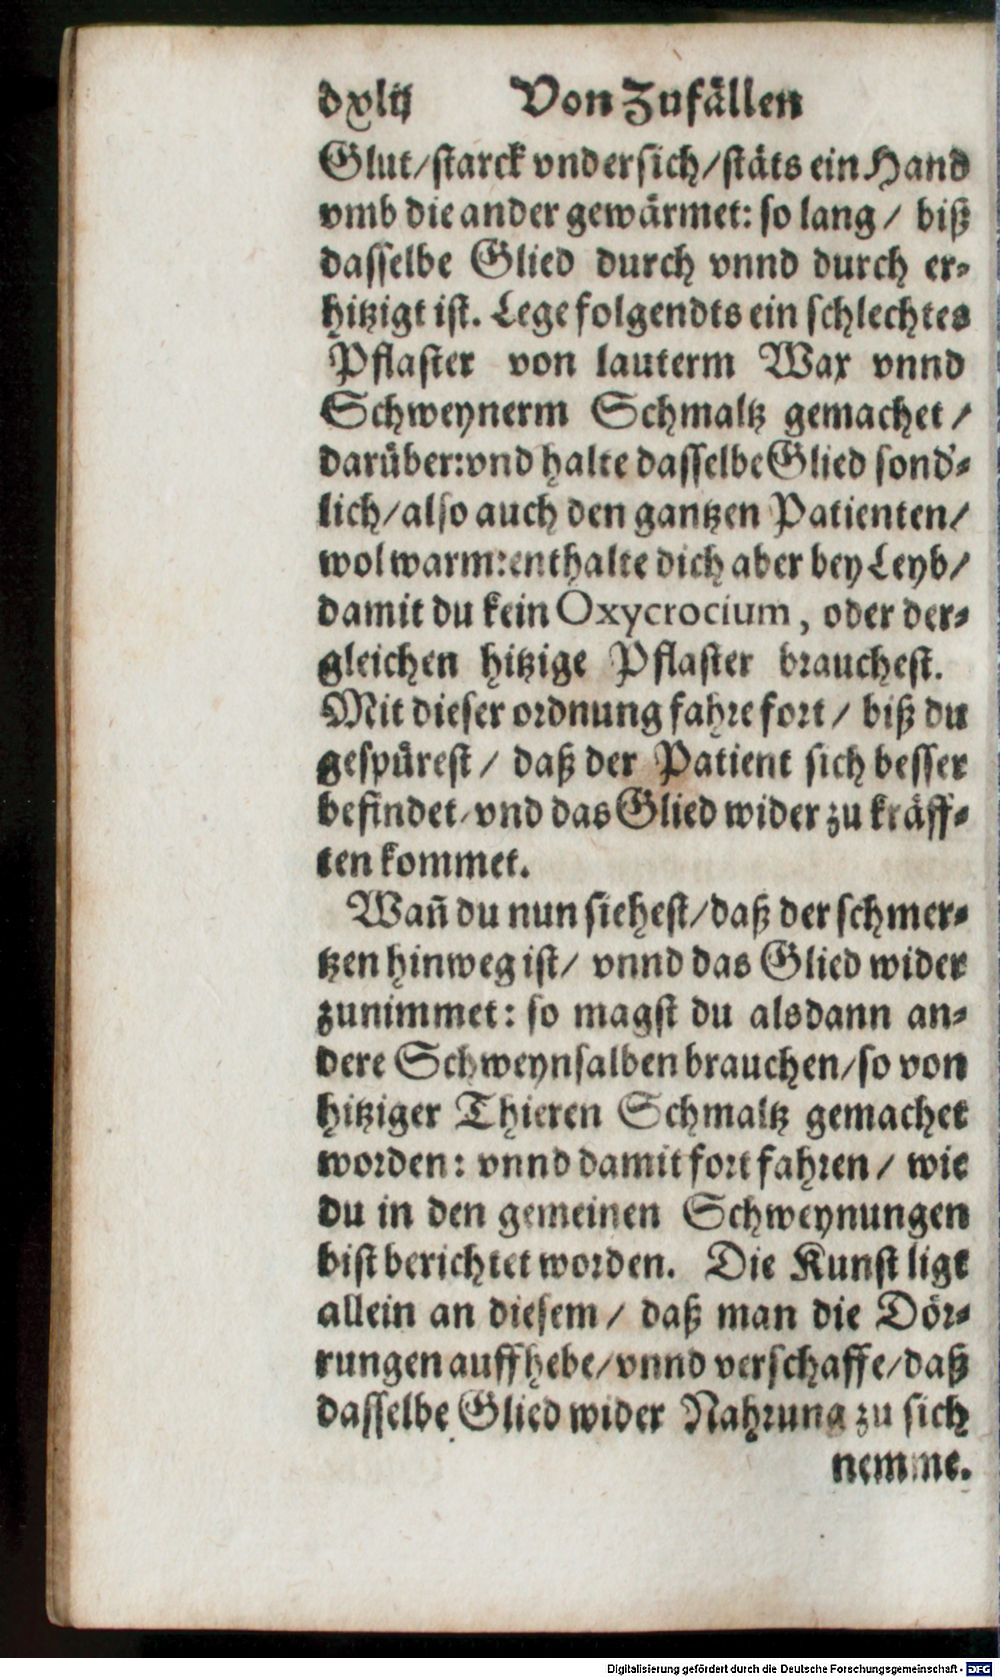 dxlij Von Zufällen
Glut/starck vndersich/stäts ein Hand
vmb die ander gewärmet: so lang/ biß
dasselbe Glied durch vnnd durch er-
hitzigt ist. Lege folgendts ein schlechtes
Pflaster von lauterm Wax vnnd
Schweynerm Schmaltz gemachet/
darüber: vnd halte dasselbe Glied sond'-
lich/also auch den gantzen Patienten/
wol warm: enthalte dich aber bey Leyb/
damit du kein Oxycrocium, oder der-
gleichen hitzige Pflaster brauchest.
Mit dieser ordnung fahre fort/ biß du
gespürest/ daß der Patient sich besser
befindet/vnd das Glied wider zu kräff-
ten kommet.
Wañ du nun siehest/daß der schmer-
tzen hinweg ist/ vnnd das Glied wider
zunimmet: so magst du alsdann an-
dere Schweynsalben brauchen/so von
hitziger Thieren Schmaltz gemachet
worden: vnnd damit fort fahren/ wie
du in den gemeinen Schweynungen
bist berichtet worden. Die Kunst ligt
allein an diesem/ daß man die Dör-
rungen auffhebe/vnnd verschaffe/daß
dasselbe Glied wider Nahrung zu sich
nemme.
Digitalisierung gefördert durch die Deutsche Forschungsgemeinschaft - DFG